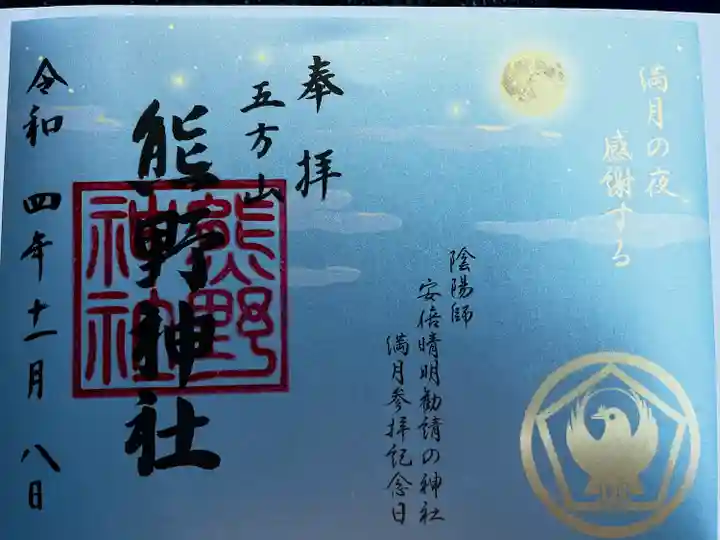 満月の夜
感謝する
奉拝
五方山
熊野神社
熊野
神社
陰陽師
安倍晴明勧請の神社
満月参拝記念日
令和四年十一月八日